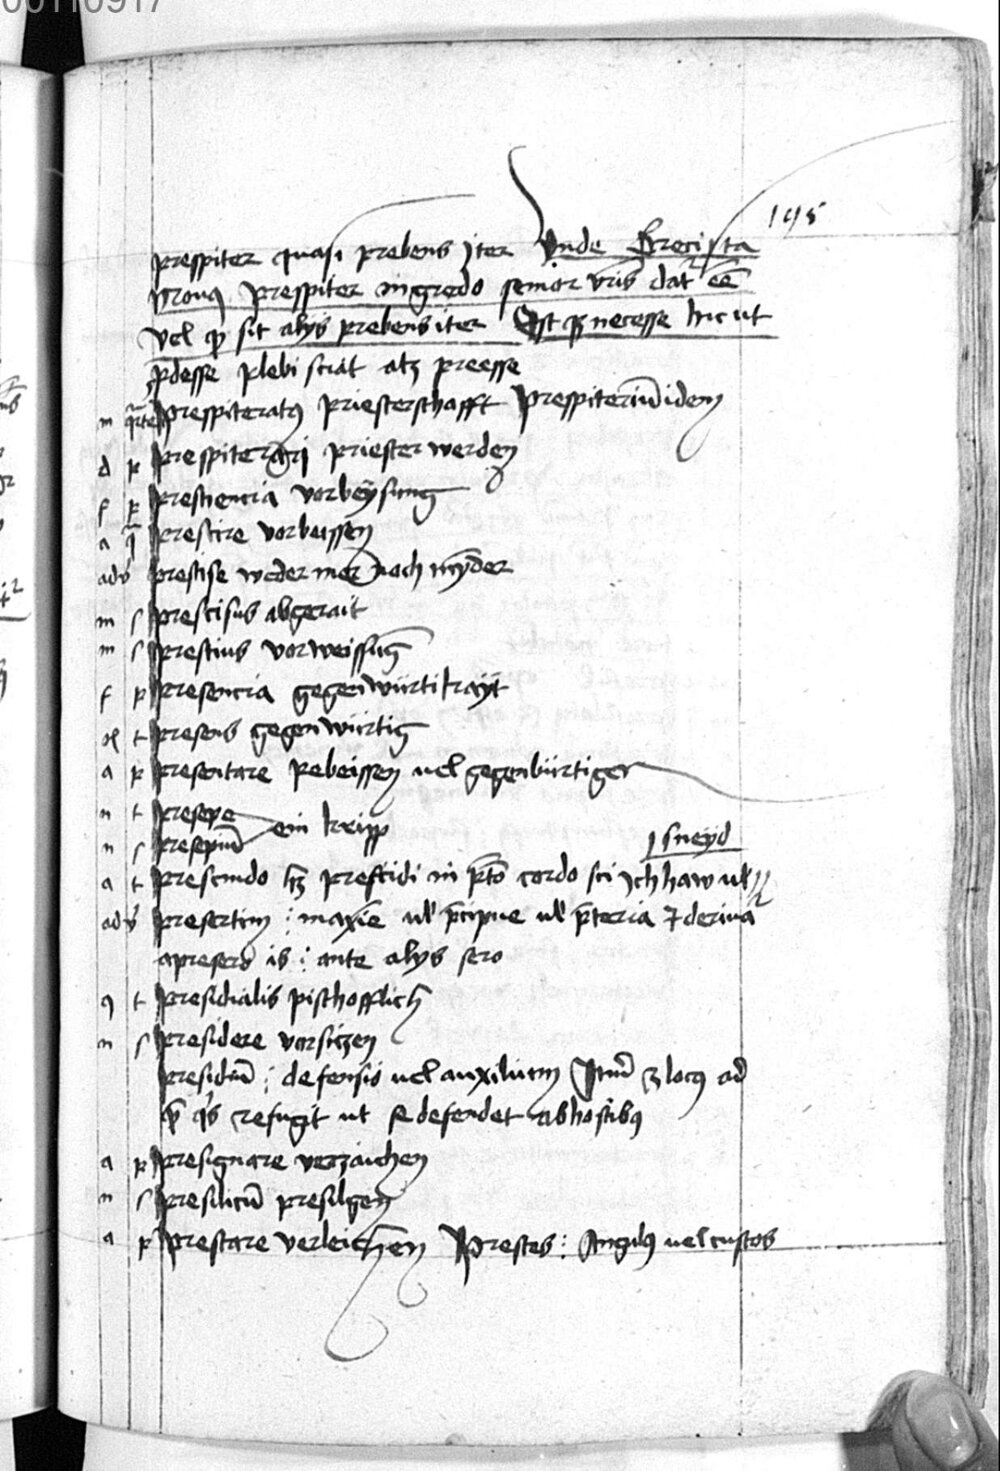 00110917
195
prespiter quasi prebens iter Vnde Grecista
Prespiter in gredo senior vris dat eē
vel qp sit alys prebens iter Est qz necesse hic ut
pdesse plebi sciat atqz preesse
m qrte prespiteratus priesterschafft Prespiteriū idem
d p prespiterari priester werden
f p presciencia vorbeysung
a q prescire vorbeissen
adv prescise weder mer noch mynder
m s prescisus abgerait
m s prescius vorweissug
f p presencia gegenwürtikayt
o t presens gegenwürtig
a p presentare pebeissen uel gegenbürtigen
n t presepe
ein kripp
n s presepiū
j sneyd
a t prescindo hz prescidi in pto cordo sci ich haw ul
adv presertim i maxie ul pcipue ul pteria et deriua
a presero is i ante alys sero
o t presidialis pischofflich
n s presidere vorsiczen
presidiū i defensio uel auxilium Itud z locus ad
qs refugit ut se defendet ab hostibus
a p presignare verzaichen
n s presiliciū presilgen
a p prestare verleichen Prestes i Angulus uel custos